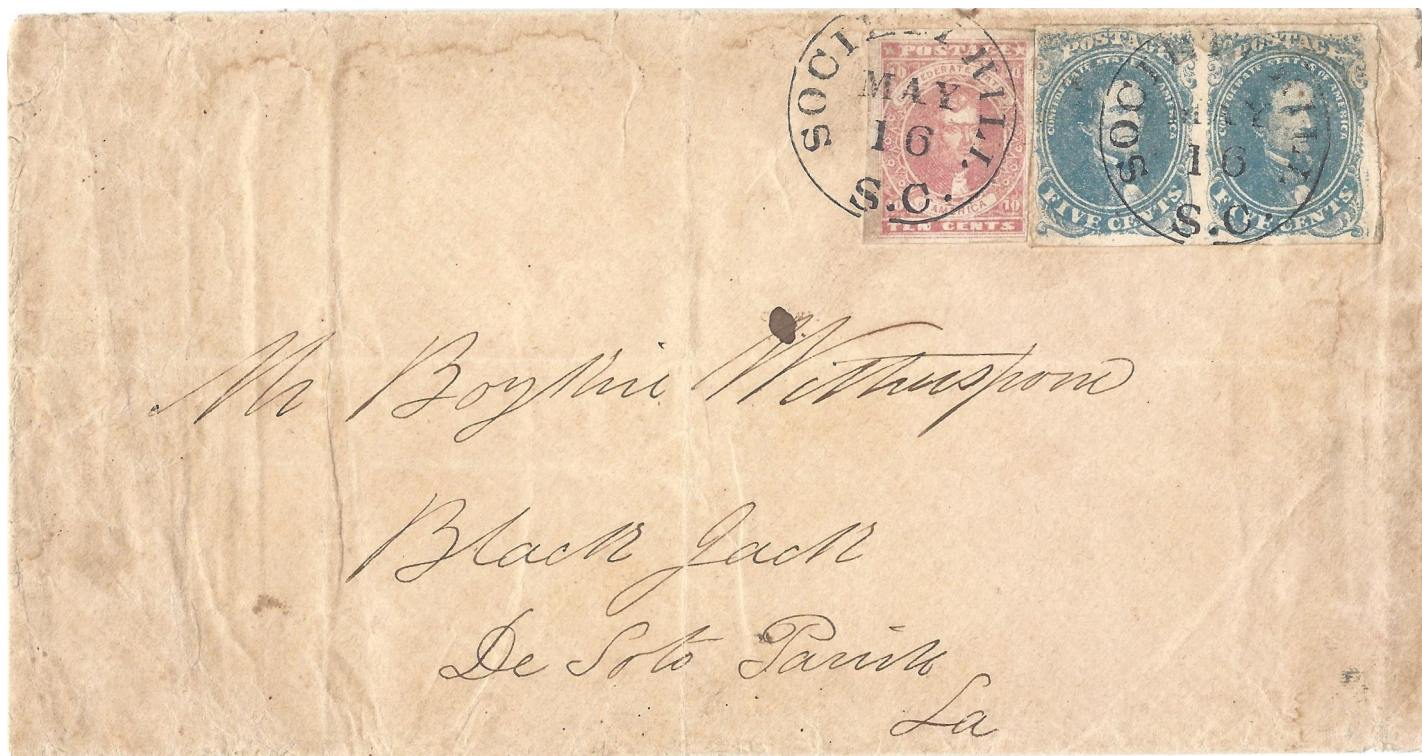 SOCIETY HILL
MAY
16
S.C.
POSTAGE
CONFEDERATE STATES
OF AMERICA
10 10
TEN CENTS
SOCIETY HILL
MAY
16
S.C.
POSTAGE
CONFEDERATE STATES OF AMERICA
FIVE CENTS
POSTAGE
CONFEDERATE STATES OF AMERICA
FIVE CENTS
Mr Boykin Witherspoon
Black Jack
De Soto Parish
La